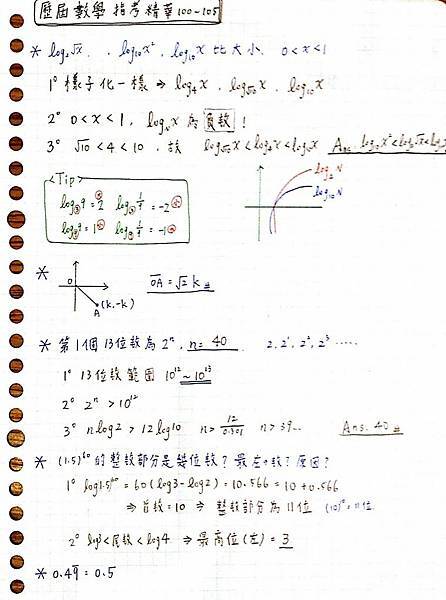 歷屆數學指考精華100~105
* log₂√x、log₁₀x²、log₁₀x 比大小 0<x<1
1° 樣子化一樣 ⇒ log₄x、log√10 x、log₁₀x
2° 0<x<1, log_N x 為負數!
3° √10<4<10,故 log√10 x<log₄x<log₁₀x Ans: log₁₀x²<log₂√x<log₁₀x
<Tip>
log₃9=2 log₃1/9=-2
log₉9=1 log₉1/9=-1
log₂N
log₁₀N
* 0 A(k,-k) OA=√2 k
* 第1個13位數為2ⁿ, n=40 2, 2¹, 2², 2³ ⋯⋯
1° 13位數範圍 10¹²~10¹³
2° 2ⁿ>10¹²
3° nlog2>12log10 n>12/0.301 n>39⋯ Ans. 40
* (1.5)⁶⁰的整數部分是幾位數?最左+數?原因?
1° log1.5⁶⁰=60(log3-log2)=10.566=10+0.566
⇒首數=10 ⇒ 整數部分為11位 (10)¹⁰=11位
2° log3<尾數<log4 ⇒最高位(左)=3
* 0.49̅=0.5